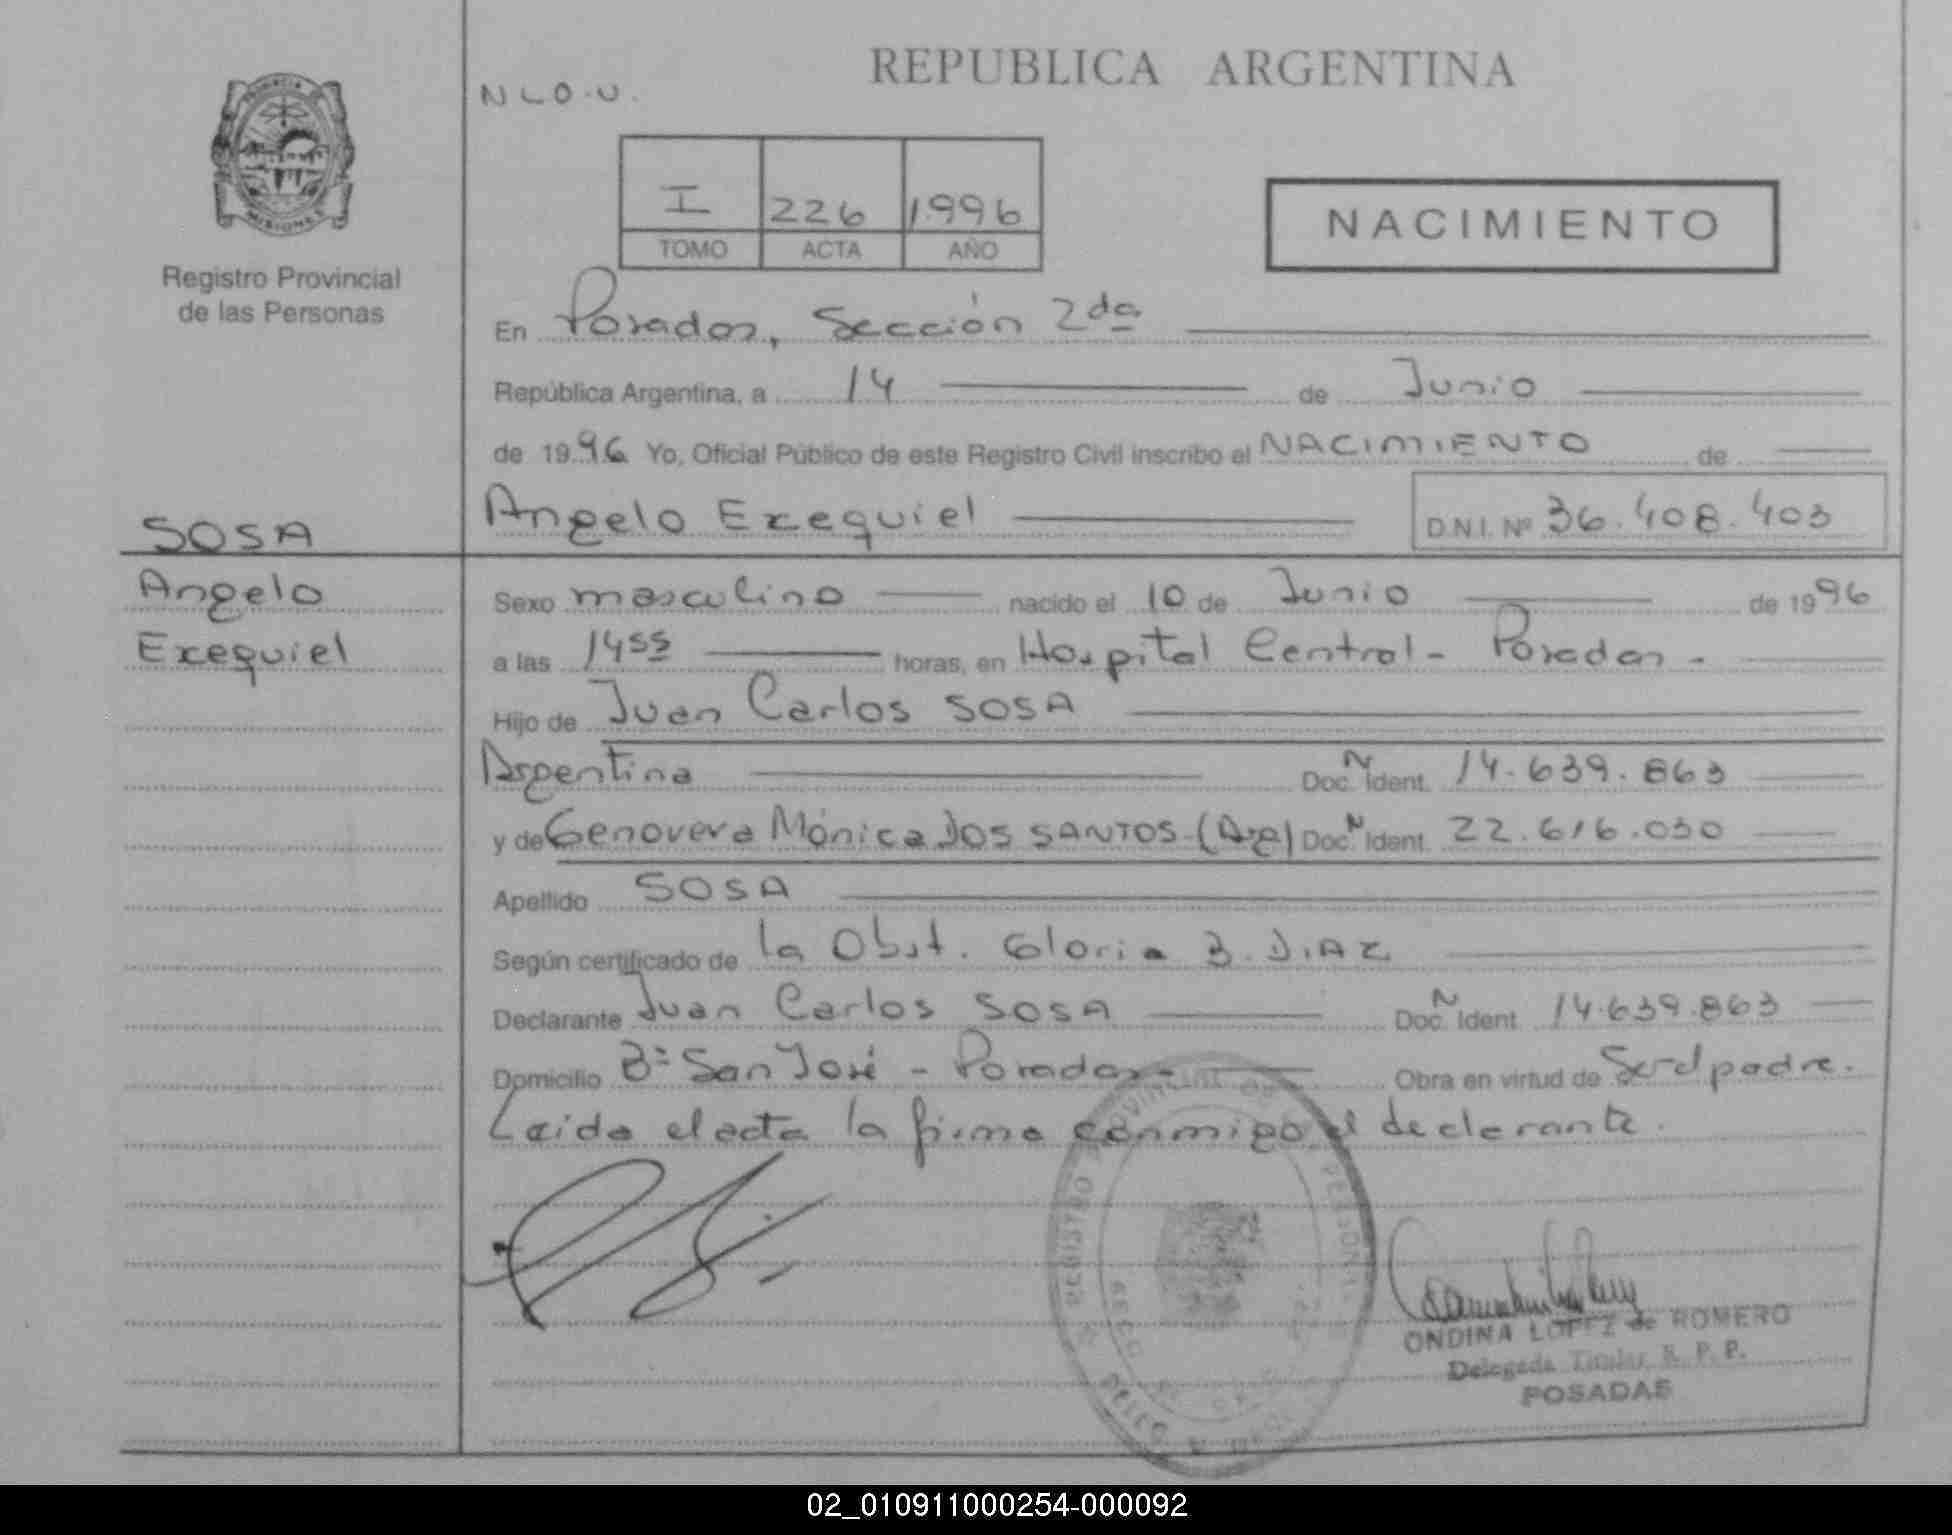 REPUBLICA ARGENTINA
N L O . U .
PROVINCIA DE
MISIONES
Registro Provincial
de las Personas
I 226 1996
TOMO ACTA AÑO
NACIMIENTO
En Posadas, Sección 2da
República Argentina, a 14 de Junio
de 1996 Yo, Oficial Público de este Registro Civil inscribo el NACIMIENTO de
SOSA
Angelo Exequiel D.N.I. Nº 36.408.403
Angelo
Exequiel
Sexo masculino nacido el 10 de Junio de 1996
a las 14 55 horas, en Hospital Central - Posadas -
Hijo de Juan Carlos SOSA
Argentina Doc. N Ident. 14.639.863
y de Genoveva Mónica DOS SANTOS - (Arg) Doc. N Ident. 22.616.030
Apellido SOSA
Según certificado de la Obst. Gloria B. DIAZ
Declarante Juan Carlos SOSA Doc. N Ident 14.639.863
Domicilio Bº San José - Posadas - Obra en virtud de Ser el padre.
Leida el acta la firma conmigo el declarante.
REGISTRO PROVINCIAL DE PERSONAS
ONDINA LOPEZ de ROMERO
Delegada Titular R. P. P.
POSADAS
02_010911000254-000092